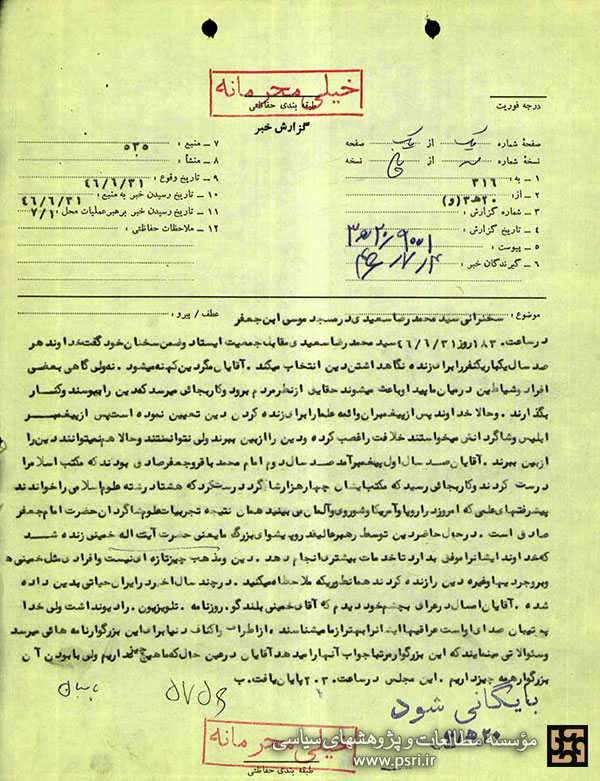 خیلی محرمانه
طبقه بندی حفاظتی
درجه فوریت
گزارش خبر
صفحهٔ شماره یک از یک صفحه
نسخهٔ شماره از نسخه
۱ – به : ۳۱۶
۲ – از : ۲۰ هـ ۳ (و)
۳ – شماره گزارش :
۴ – تاریخ گزارش :
۵ – پیوست :
۶ – گیرندگان خبر :
۷ – منبع : ۵۳۵
۸ – منشأ :
۹ – تاریخ وقوع : ۴۶/۶/۳۱
۱۰ – تاریخ رسیدن خبر به منبع : ۴۶/۶/۳۱
۱۱ – تاریخ رسیدن خبر برهبر عملیات محل : ۷/۱
۱۲ – ملاحظات حفاظتی :
موضوع : سخنرانی سید محمد رضا سعیدی در مسجد موسی ابن جعفر عطف / پیرو :
در ساعت ۱۸۳۰ روز ۴۶/۶/۳۱ سید محمد رضا سعیدی مقابل جمعیت ایستاد و ضمن سخنان خود گفت خداوند هر
صد سال یکبار یکنفر را برای زنده نگاهداشتن دین انتخاب میکند . آقایان مگر دین کهنه میشود . نه ولی گاهی بعضی
افراد و شیاطین در میان ما پیدا و باعث میشوند حقایق از نظر مردم برود و کار بجائی میرسد که دین را ببوسند و کنار
بگذارند . و حالا خداوند پس از پیغمبران و ائمه علما را برای زنده کردن دین تعیین نموده است پس از پیغمبر
ابلیس و شاگردانش میخواستند خلافت را غصب کرده و دین را از بین ببرند ولی نتوانستند و حالا هم نمیتوانند دین را
از بین ببرند . آقایان صد سال اول پیغمبر آمد صد سال دوم امام محمد باقر و جعفر صادق بودند که مکتب اسلام را
درست کردند و کار بجائی رسید که مکتب ایشان چهار هزار شاگرد درست کرد که هشتاد رشته علوم اسلامی را خواندند
پیشرفتهای علمی که امروز در اروپا و آمریکا و شوروی و آلمان می بینید همان نتیجه تجربیات علوم شاگردان حضرت امام جعفر
صادق است . در حال حاضر دین توسط رهبر عالیقدر و پیشوای بزرگ ما یعنی حضرت آیت اله خمینی زنده شد
که خداوند ایشانرا موفق بدارد تا خدمات بیشتری انجام دهد . دین و مذهب چیز تازه ای نیست و افرادی مثل خمینی ها
و بروجردیها و غیره دین را زنده کردند همانطوریکه ملاحظه میکنید . در چند سال اخیر در ایران حیاتی بدین داده
شده . آقایان امسال در عراق بچشم خود دیدم که آقای خمینی بلندگو . روزنامه . تلویزیون . رادیو نداشت ولی خدا
پشتیبان صدای او است عراقیها ایشانرا بهتر از ما میشناسند . از اطراف و اکناف دنیا برای این بزرگوار نامه هائی میرسد
و سئوالاتی مینمایند که این بزرگوار مرتبا جواب آنها را میدهد آقایان در عین حال که ما هیچ چیز نداریم ولی با بودن آن
بزرگوار همه چیز داریم . این مجلس در ساعت ۲۰۳۰ پایان یافت . ب
بایگانی شود
۲۰ هـ ۳
خیلی محرمانه
طبقه بندی حفاظتی
مؤسسه مطالعات و پژوهشهای سیاسی
www.psri.ir